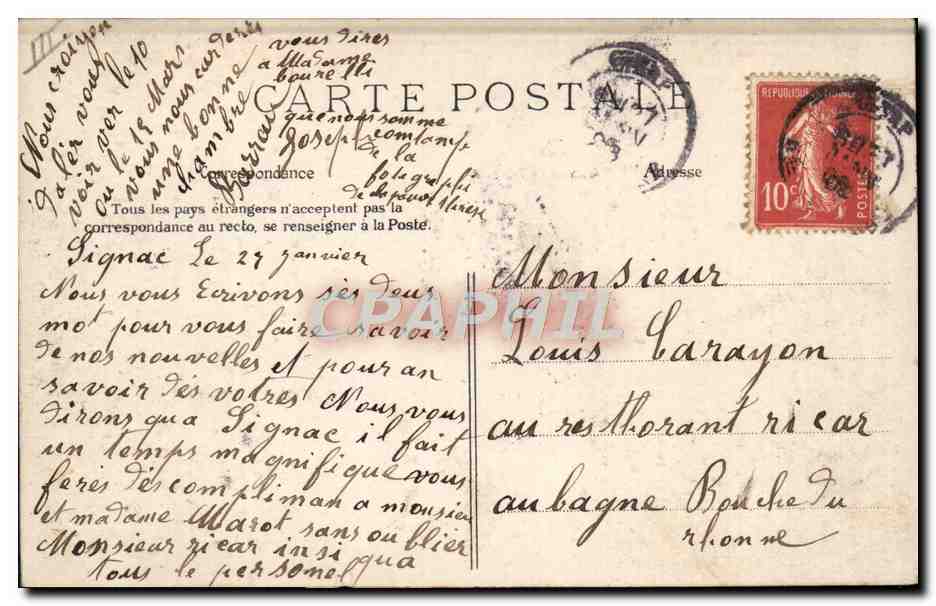 III
Nous croiyon
d'alér vous
voir ver le 10
ou le 15 Mars
vous nous garderés
une bonne
chambre
Barrau
vous dires
a Madame
bourelli
que nous somme
Joseph contamp
de la
fotograffi
CARTE POSTALE
Correspondance
Adresse
Tous les pays étrangers n'acceptent pas la
correspondance au recto, se renseigner à la Poste.
Signac Le 27 Janvier
Nous vous Ecrivons ses deus
mot pour vous faire savoir
de nos nouvelles et pour an
savoir dés votres Nous vous
dirons qua Signac il fait
un temps magnifique vous
feres dés compliman a monsieu
et madame Marot sans ou blier
Monsieur ricar insi qua
tous le personel
Monsieur
Louis Carayon
au resthorant ricar
aubagne Bouche du
rhonne
REPUBLIQUE
10c
POSTES
CPAPHIL